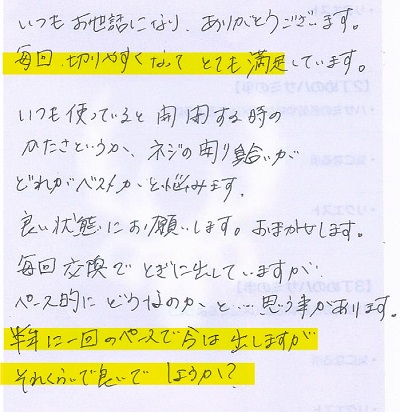 いつもお世話になり、ありがとうございます。
毎回、切りやすくなって とても満足しています。
いつも使っていると開閉する時の
かたさというか、ネジの開り具合いが
どれがベストかと悩みます。
良い状態にお願いします。おまかせします。
毎回交換でとぎに出していますが
ペース的にどうなのかと…思う事があります。
半年に一回のペースで今は出しますが
それくらいで良いでしょうか？